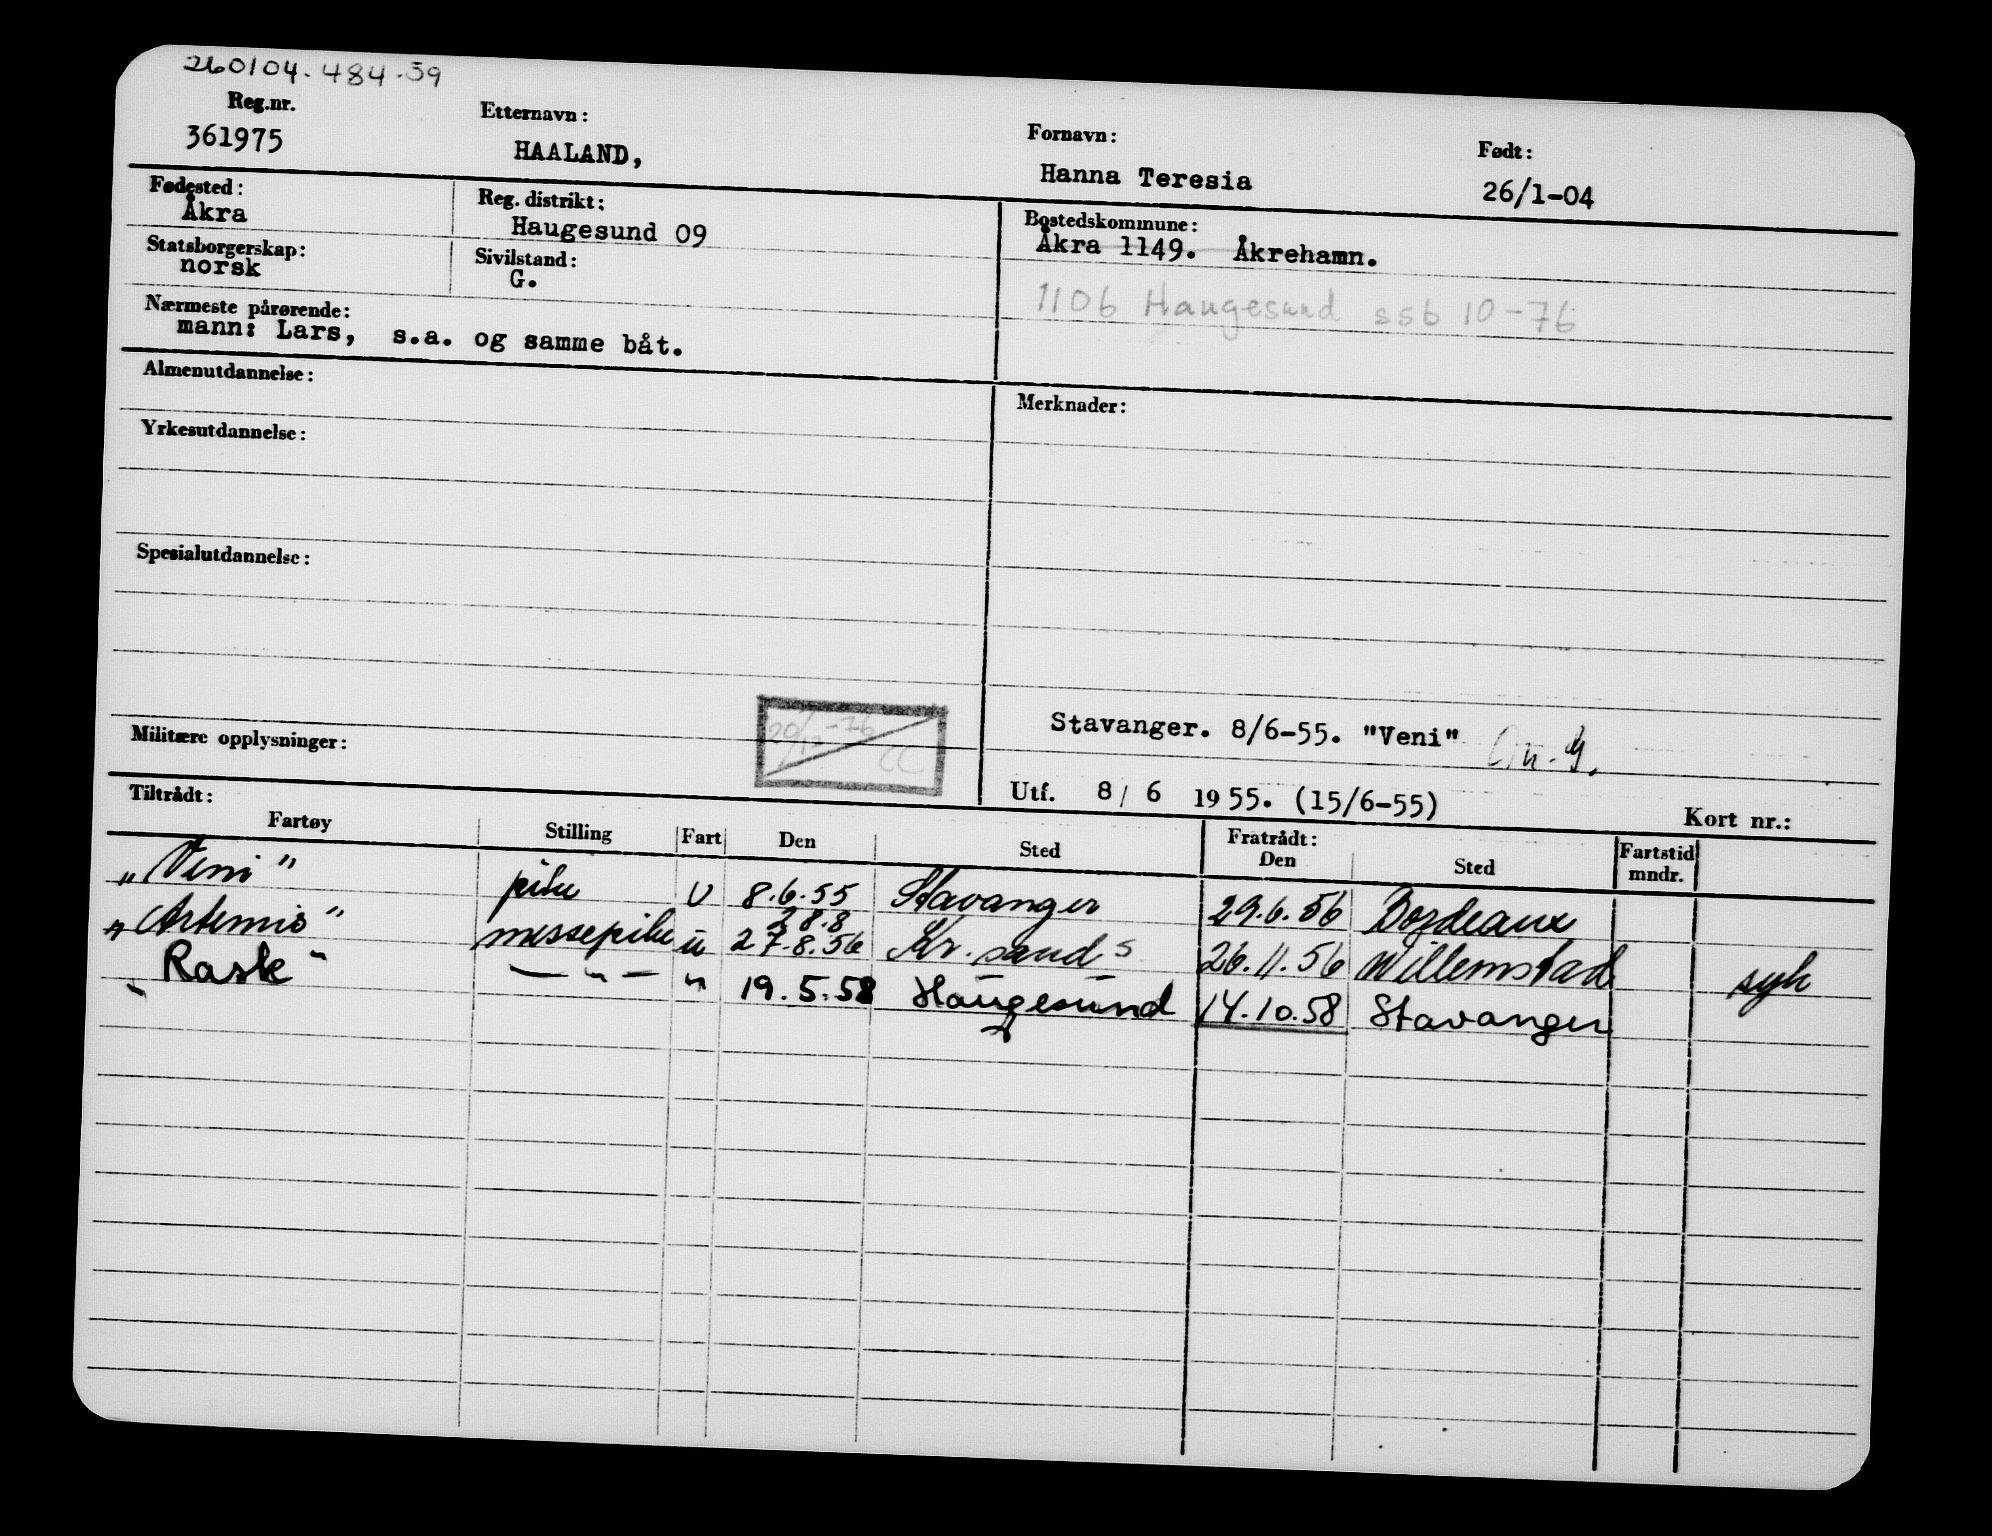 260104.484.59
Reg.nr. Etternavn: Fornavn: Født:
361975 HAALAND, Hanna Teresia 26/1-04
Fødested: Reg. distrikt: Bostedskommune:
Åkra Haugesund 09 Åkra 1149. Åkrehamn.
Statsborgerskap: Sivilstand:
norsk G. 1106 Haugesund ssb 10-76
Nærmeste pårørende:
mann: Lars, s.a. og samme båt.
Almenutdannelse: Merknader:
Yrkesutdannelse:
Spesialutdannelse:
20/12-76 CC
Stavanger. 8/6-55. "Veni"
Militære opplysninger:
Utf. 8/ 6 1955. (15/6-55) Kort nr.:
Tiltrådt: Fratrådt:
Fartøy Stilling Fart Den Sted Den Sted Fartstid mndr.
"Veni" pike U 8.6.55 Stavanger 29.6.56 Bordeaux
28.8
"Artemis" messepike u 27.8.56 Kr. sand s 26.11.56 Willemstad syk
"Rask" — " — " 19.5.58 Haugesund 14.10.58 Stavanger